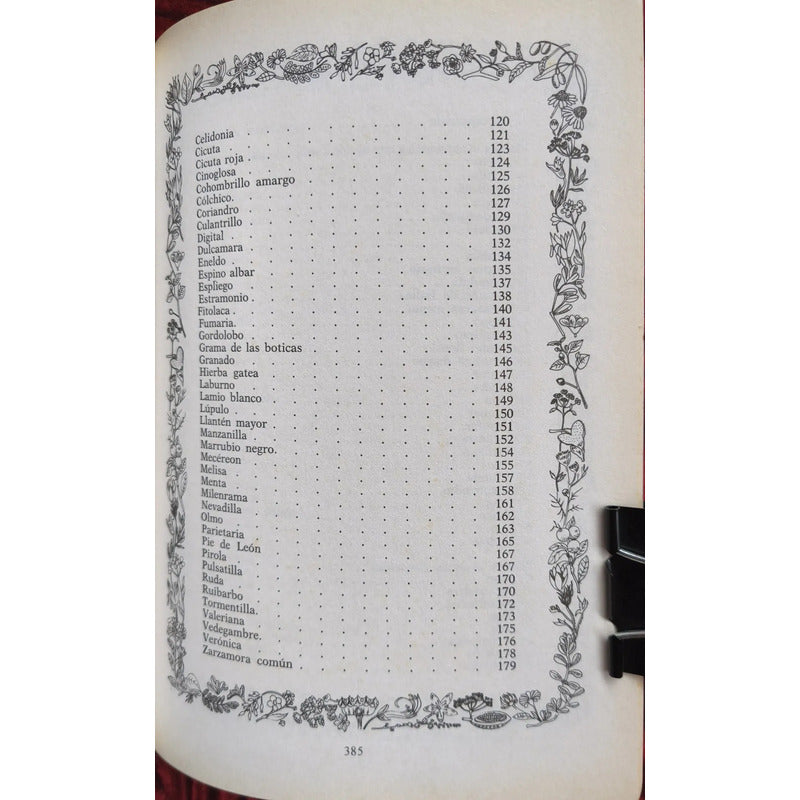 Celidonia . . . . . . . . 120
Cicuta . . . . . . . . 121
Cicuta roja . . . . . . . . 123
Cinoglosa . . . . . . . . 124
Cohombrillo amargo . . . . . . 125
Cólchico. . . . . . . . 126
Coriandro . . . . . . . . 127
Culantrillo . . . . . . . . 129
Digital . . . . . . . . 130
Dulcamara . . . . . . . . 132
Eneldo . . . . . . . . 134
Espino albar . . . . . . . 135
Espliego . . . . . . . . 137
Estramonio . . . . . . . . 138
Fitolaca . . . . . . . . 140
Fumaria. . . . . . . . 141
Gordolobo . . . . . . . . 143
Grama de las boticas . . . . . . 145
Granado . . . . . . . . 146
Hierba gatea . . . . . . . 147
Laburno . . . . . . . . 148
Lamio blanco . . . . . . . 149
Lúpulo . . . . . . . . 150
Llantén mayor . . . . . . . 151
Manzanilla . . . . . . . . 152
Marrubio negro. . . . . . . 154
Mecéreon . . . . . . . . 155
Melisa . . . . . . . . 157
Menta . . . . . . . . 158
Milenrama . . . . . . . . 161
Nevadilla . . . . . . . . 162
Olmo . . . . . . . . 163
Parietaria . . . . . . . . 165
Pie de León . . . . . . . 167
Pirola . . . . . . . . 167
Pulsatilla . . . . . . . . 170
Ruda . . . . . . . . 170
Ruibarbo . . . . . . . . 172
Tormentilla. . . . . . . . 173
Valeriana . . . . . . . . 175
Vedegambre. . . . . . . . 176
Verónica . . . . . . . . 178
Zarzamora común . . . . . . 179
385